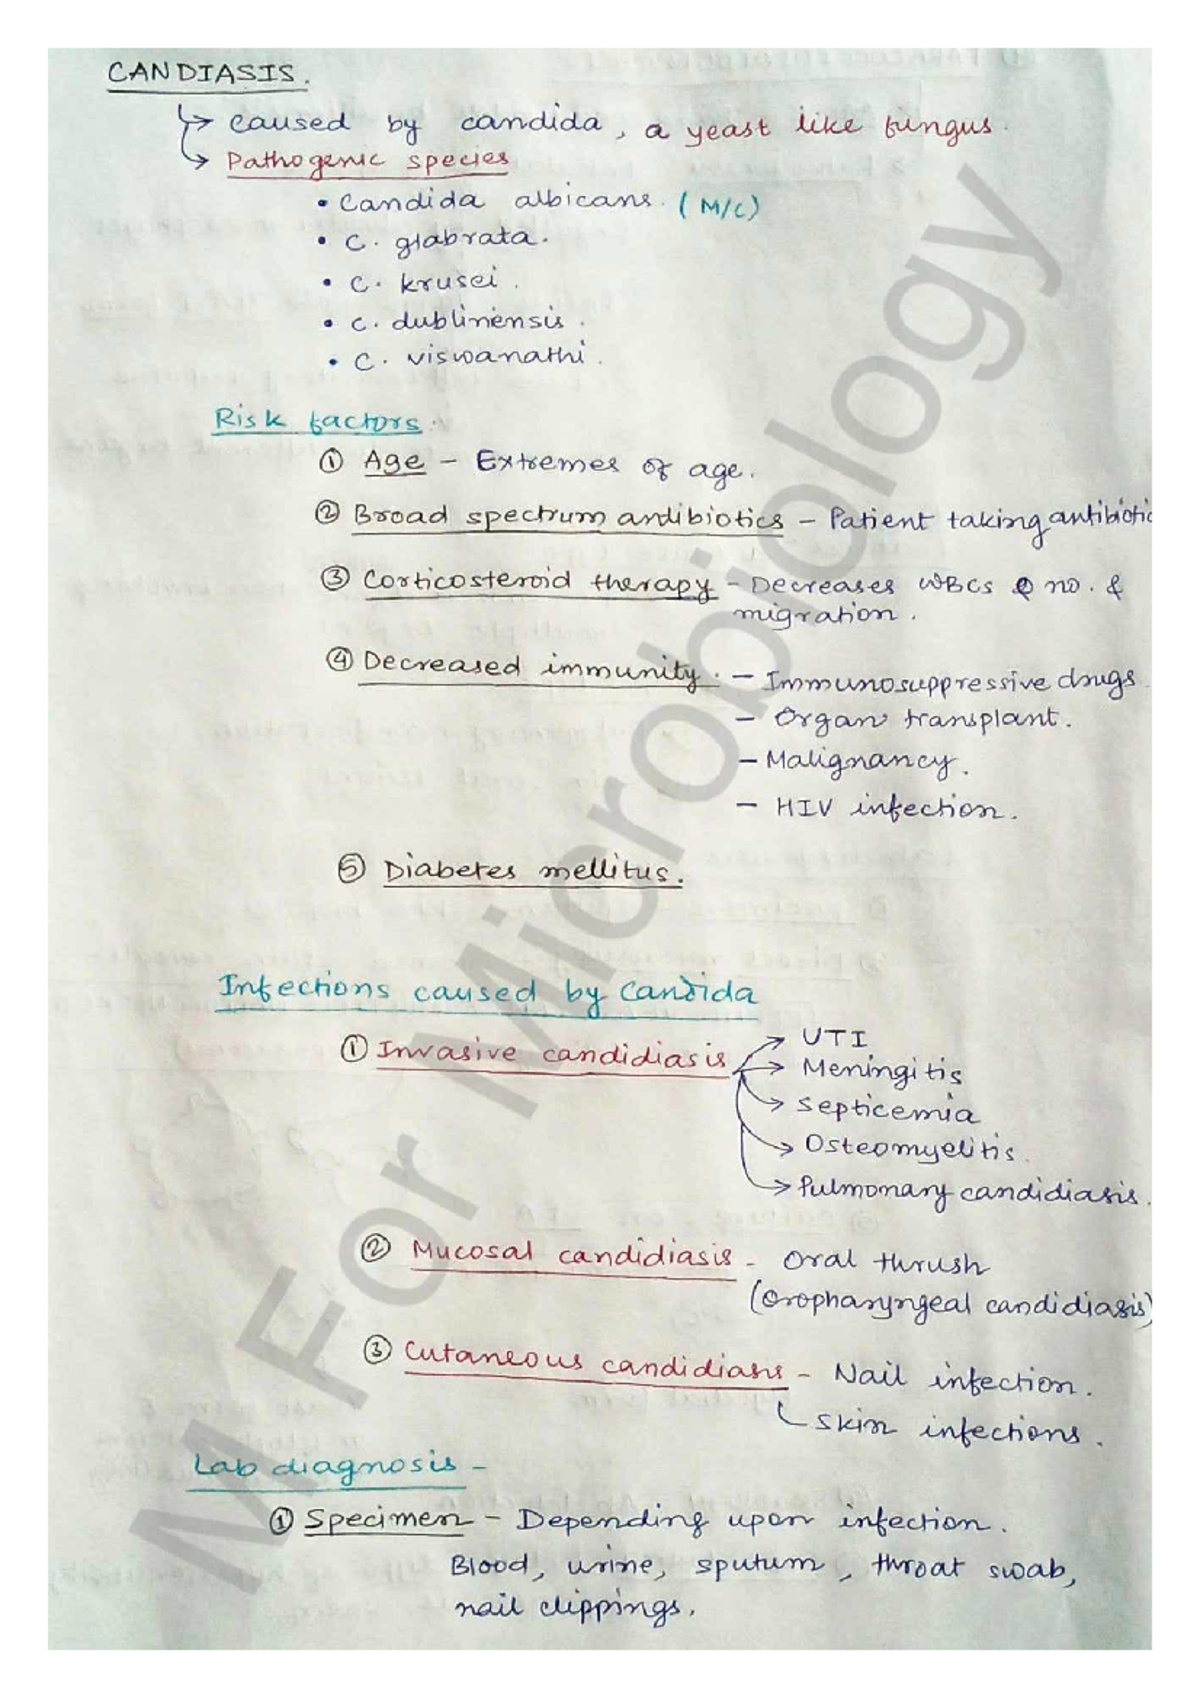 CANDIASIS.
→ caused by candida, a yeast like fungus.
→ Pathogenic species
• Candida albicans. (M/C)
• C. glabrata.
• C. krusei.
• C. dublinensis.
• C. viswanathi.
Risk factors.
① Age - Extremes of age.
② Broad spectrum antibiotics - Patient taking antibiotic
③ Corticosteroid therapy - Decreases WBCs no. &
migration.
④ Decreased immunity. - Immunosuppressive drugs
- Organ transplant.
- Malignancy.
- HIV infection.
⑤ Diabetes mellitus.
Infections caused by Candida
① Invasive candidiasis → UTI
→ Meningitis
→ Septicemia
→ Osteomyelitis.
→ Pulmonary candidiasis.
② Mucosal candidiasis - Oral thrush
(Oropharyngeal candidiasis)
③ Cutaneous candidiasis - Nail infection.
Skin infections.
Lab diagnosis -
① Specimen - Depending upon infection.
Blood, urine, sputum, throat swab,
nail clippings.
M For Microbiology